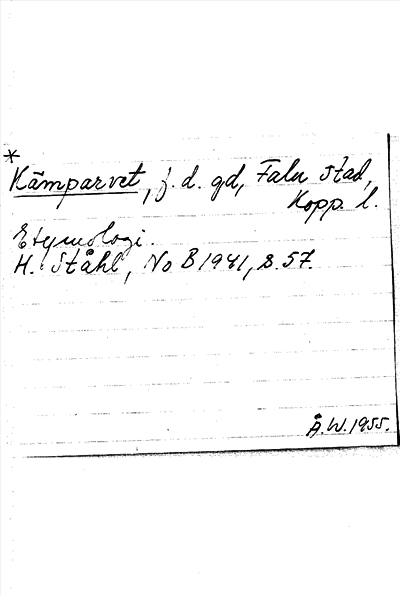 *
Kämparvet, f. d. gd, Falu stad,
Kopp. l.
Etymologi.
H. Ståhl, No B 1941, s. 57.
Å.W. 1955.